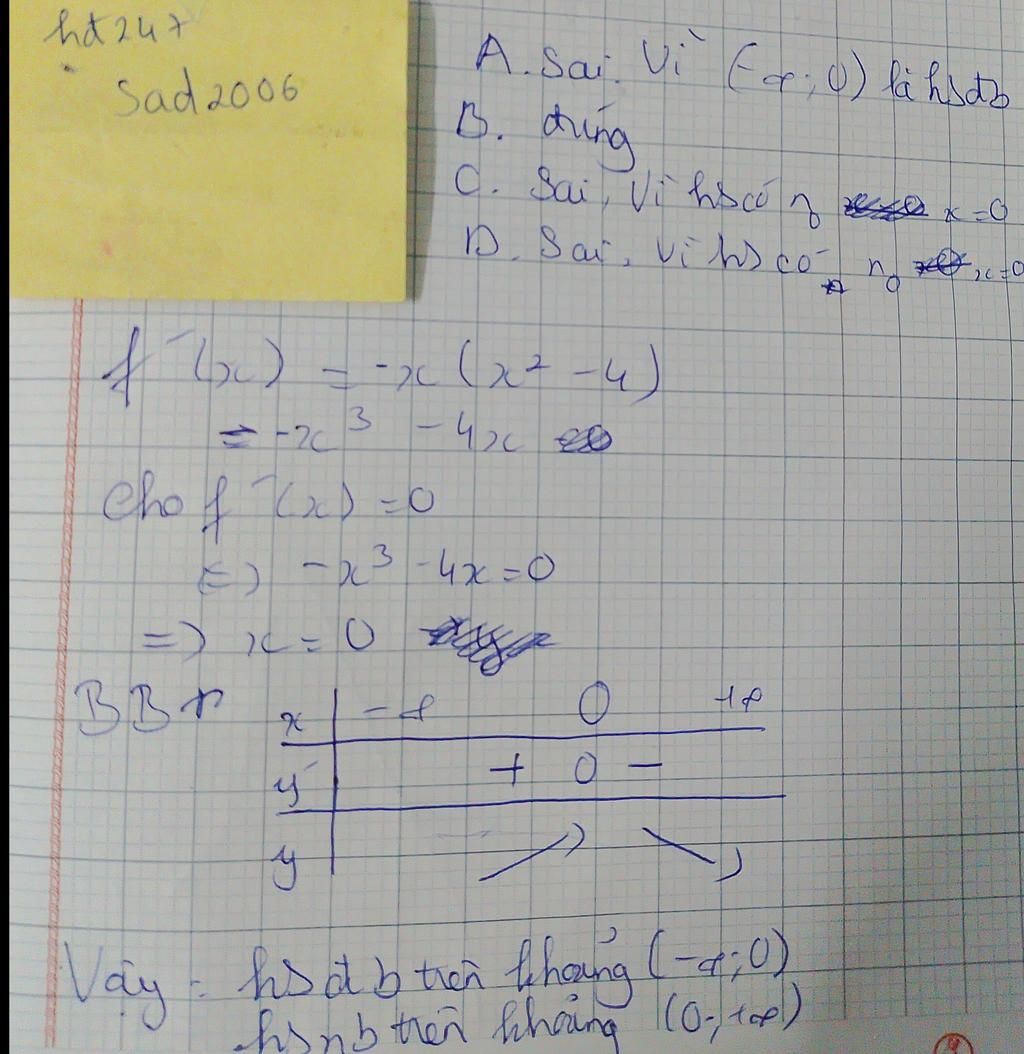 hd247
Sad2006
A. Sai. Vì (-∞; 0) là hsđb
B. đúng
C. Sai, Vì hs có n0 x = 0
D. Sai, Vì hs có n0 x = 0
f'(x) = -x (x² - 4)
= -x³ - 4x
Cho f'(x) = 0
<=> -x³ - 4x = 0
=> x = 0
BBT
x -∞ 0 +∞
y' + 0 -
y
Vậy : hs đb trên khoảng (-∞; 0)
hs nb trên khoảng (0; +∞)